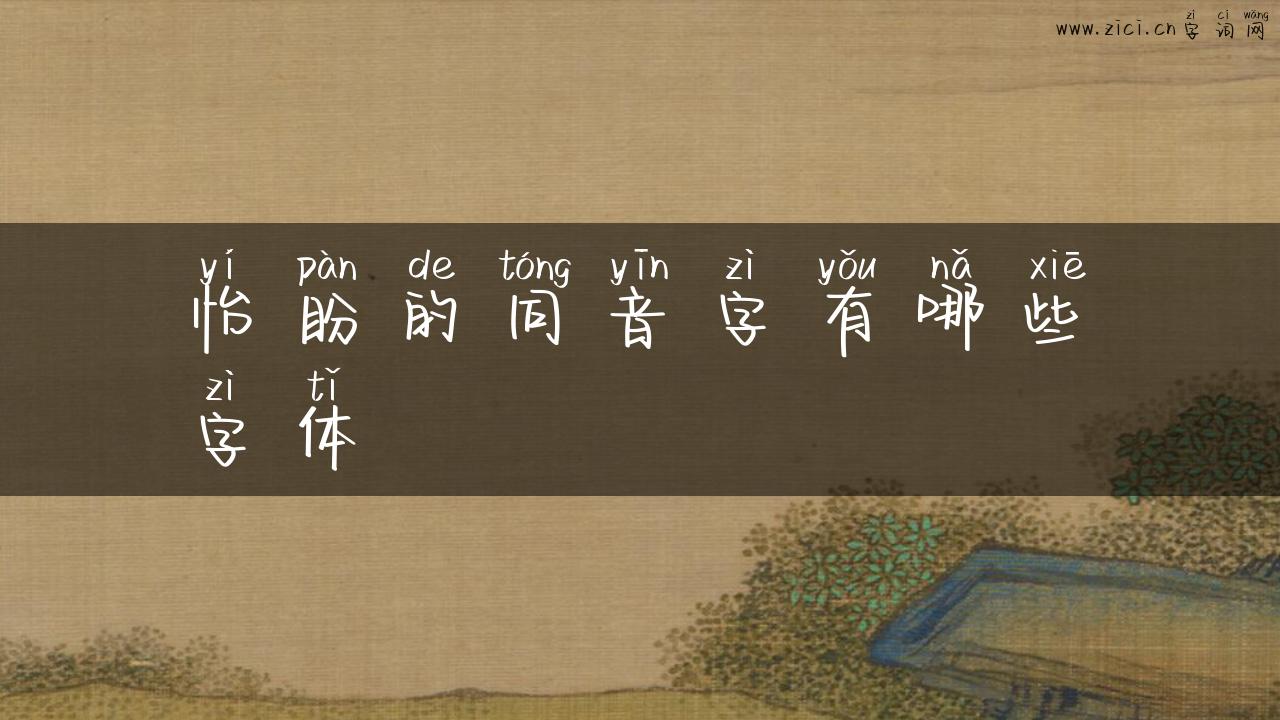 zì cí wǎng
www.zici.cn 字 词 网
yí pàn de tóng yīn zì yǒu nǎ xiē
怡 盼 的 同 音 字 有 哪 些
zì tǐ
字 体